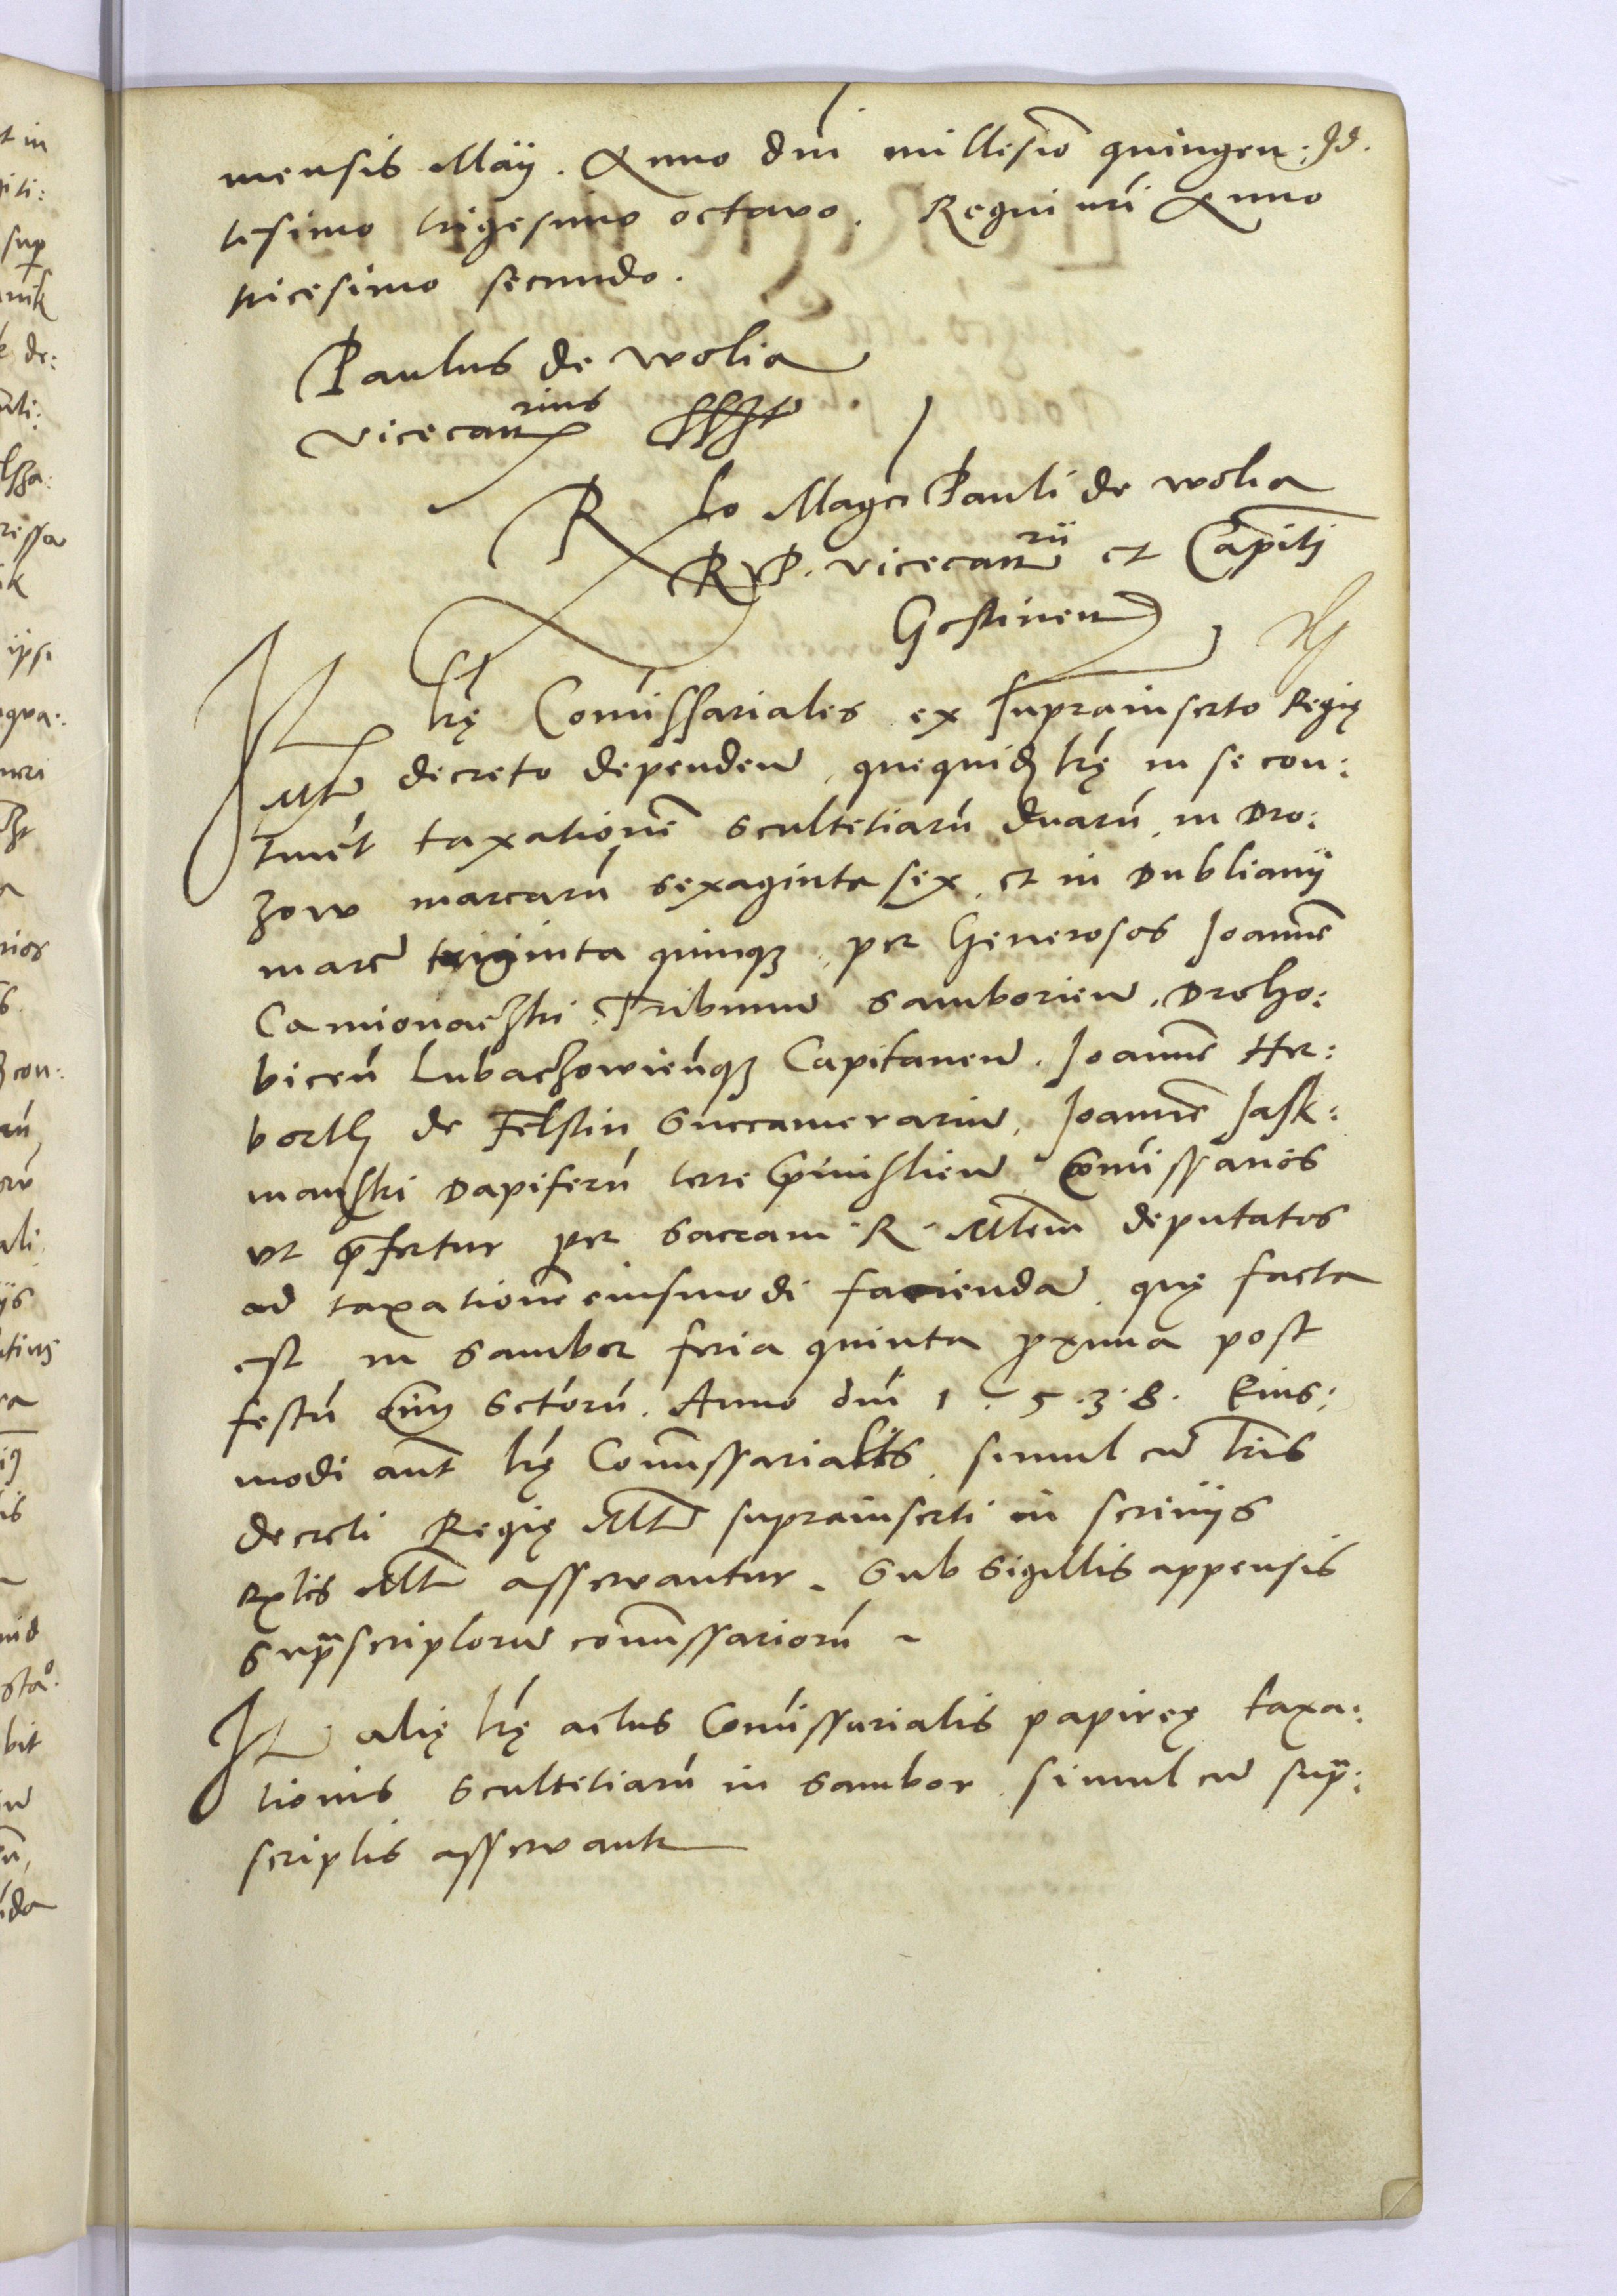 mensis Maÿ. Anno dni millesīo quingen: 18.
tesimo trigesimo octavo. Regni nri Anno
tricesimo secundo.
Paulus de wolia
vicecanrius sst
Rlo Mager Pauli de wolia
R P. vicecanrii et Capitj
Gostinen
It lrę Comissariales ex suprainserto Regię
Mtis decreto dependen, quequidē lrę in se con:
tinēt taxationē scultetiarū duarū, in Dro:
zow marcarū sexaginta sex, et in Dublianÿ
marc triginta quinqȝ, per Generosos Joannē
Camionaczki Tribunū Samborien, Droho:
bicen Lubaczowienqȝ Capitaneū. Joannē Her:
borth de Felstin Succamerariū, Joannē Jask:
manski Dapiferū terre Pmislien Comissarios
vt pfertur per sacram R Mtem deputatos
ad taxationē eiusmodi faciendā, quę facta
est in Sambor feria quinta pxima post
festū Oim Sctorū. Anno dni 1.5.3.8. Eius:
modi aūt lrę Comissariales, simul cū lris
decreti Regię Mtis suprainserti in scriniis
Rglis Mtis asservantur. Sub sigillis appensis
supscriptorū comissariorū ~
It alię lrę actus Comissarialis papireę taxa:
tionis scultetiarū in Sambor simul cū sup:
scriptis asservantr